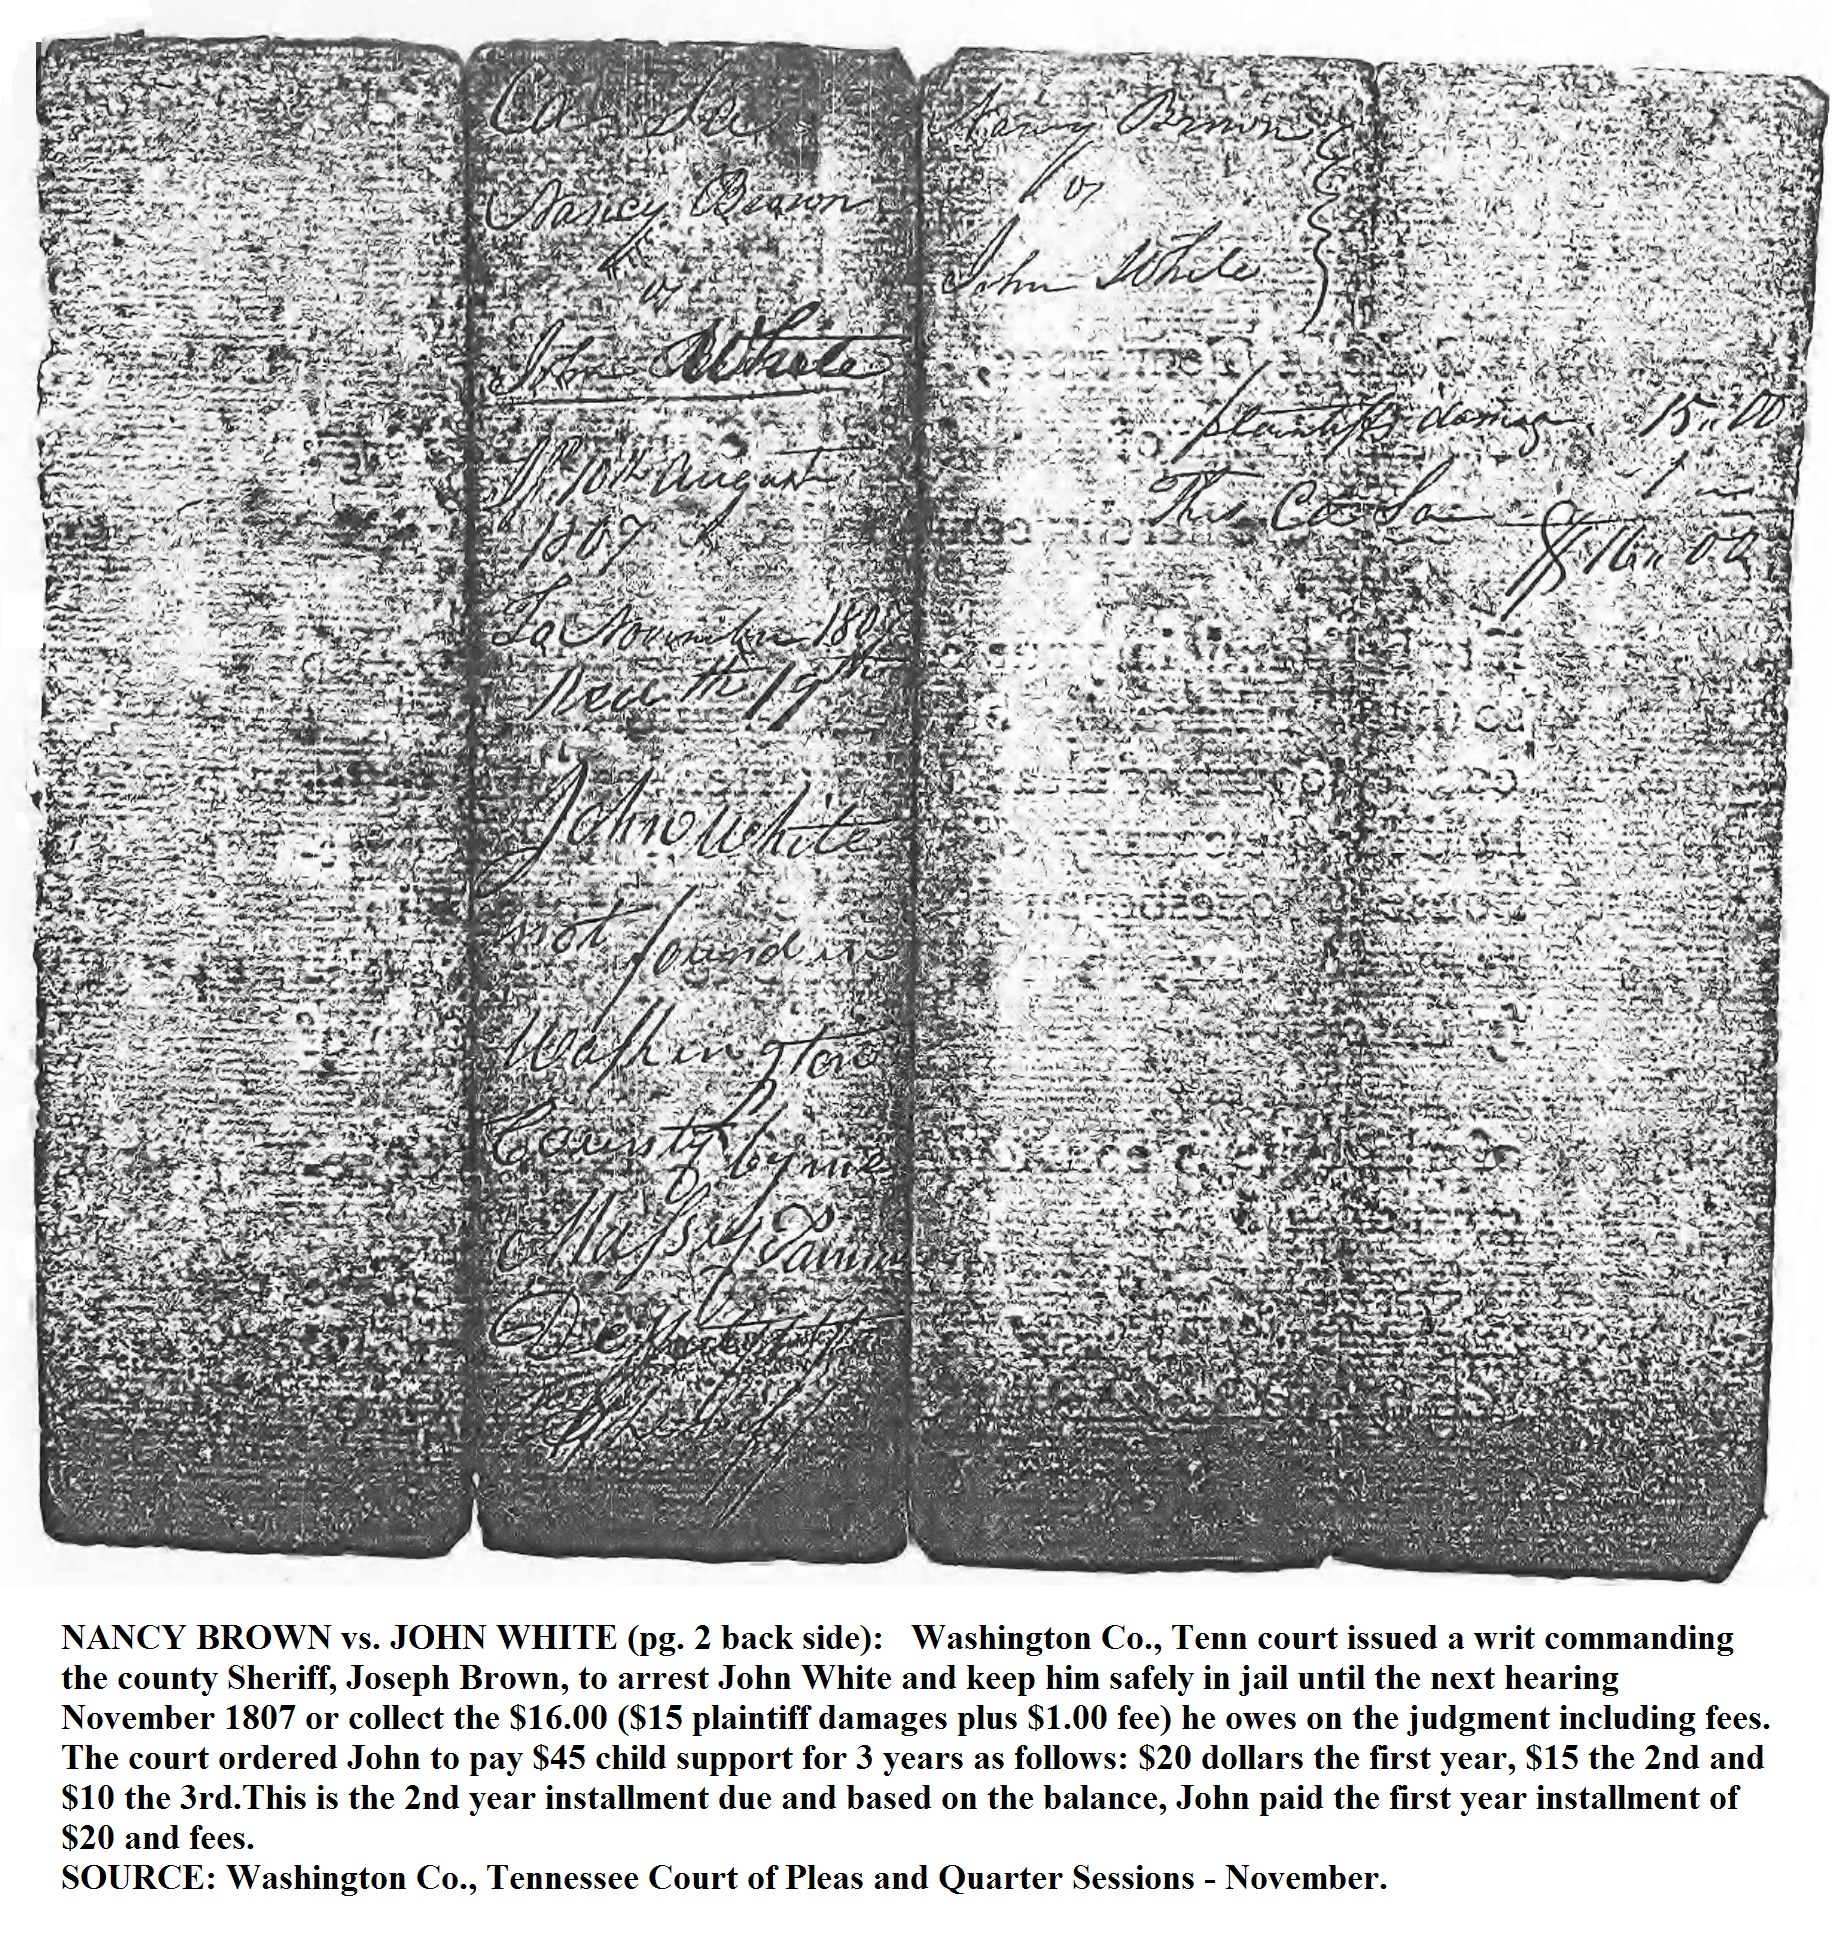 Ca Sa
Nancy Brown
vs
John White
10th August
1807
To November 1807
Recd th 19th
John White
not found in
Washington
County by me
Massey
Deputy
Nancy Brown
vs
John White
plaintiffs damage 15..00
This Ca Sa 1
$16..00
NANCY BROWN vs. JOHN WHITE (pg. 2 back side): Washington Co., Tenn court issued a writ commanding
the county Sheriff, Joseph Brown, to arrest John White and keep him safely in jail until the next hearing
November 1807 or collect the $16.00 ($15 plaintiff damages plus $1.00 fee) he owes on the judgment including fees.
The court ordered John to pay $45 child support for 3 years as follows: $20 dollars the first year, $15 the 2nd and
$10 the 3rd.This is the 2nd year installment due and based on the balance, John paid the first year installment of
$20 and fees.
SOURCE: Washington Co., Tennessee Court of Pleas and Quarter Sessions - November.